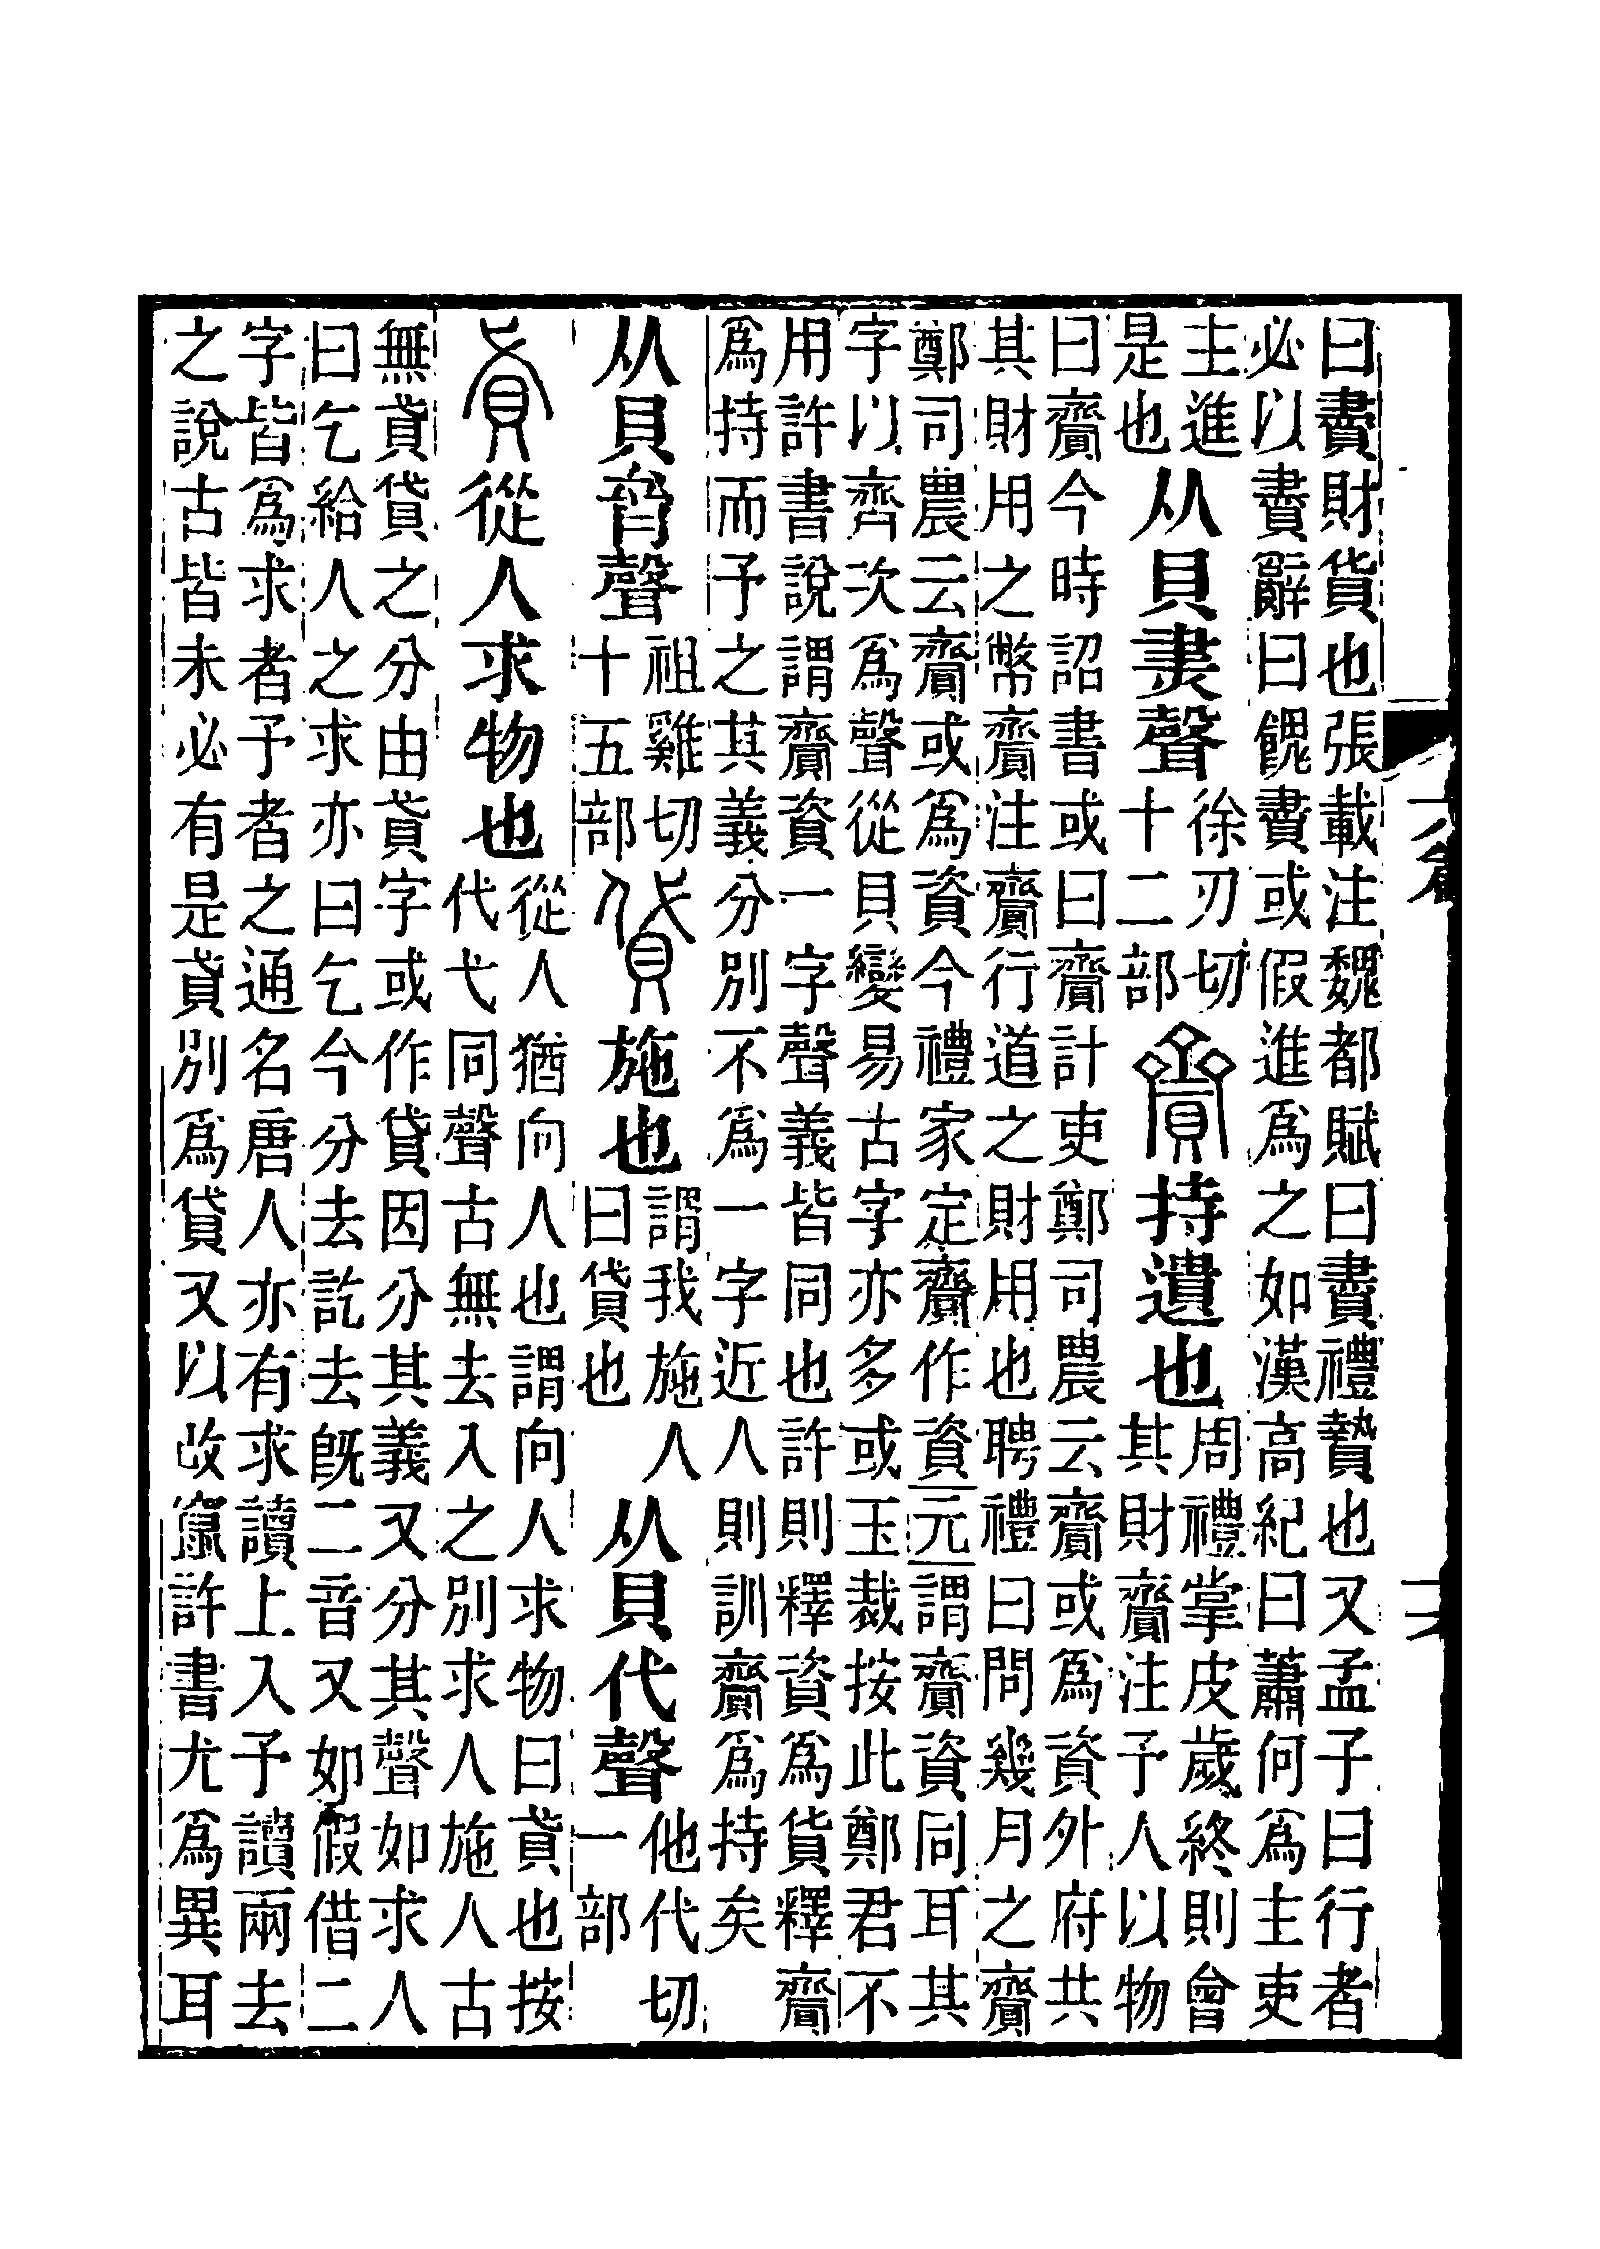 曰賮財貨也張載注魏都賦曰賮禮贄也又孟子曰行者
必以賮辭曰餽賮或假進爲之如漢高紀曰蕭何爲主吏
主進
是也
从貝㶳聲
徐刃切
十二部
齎持遺也
周禮掌皮歲終則會
其財齎注予人以物
曰齎今時詔書或曰齎計吏鄭司農云齎或爲資外府共
其財用之幣齎注齎行道之財用也聘禮曰問幾月之齎
鄭司農云齎或爲資今禮家定齎作資元謂齎資同耳其
字以齊次爲聲從貝變易古字亦多或玉裁按此鄭君不
用許書說謂齎資一字聲義皆同也許則釋資爲貨釋齎
爲持而予之其義分別不爲一字近人則訓齎爲持矣
从貝齊聲
祖雞切
十五部
貸施也
謂我施人
曰貸也
从貝代聲
他代切
一部
貣從人求物也
從人猶向人也謂向人求物曰貣也按
代弋同聲古無去入之別求人施人古
無貣貸之分由貣字或作貸因分其義又分其聲如求人
曰乞給人之求亦曰乞今分去訖去旣二音又如假借二
字皆爲求者予者之通名唐人亦有求讀上入予讀兩去
之說古皆未必有是貣別爲貸又以改竄許書尤爲異耳